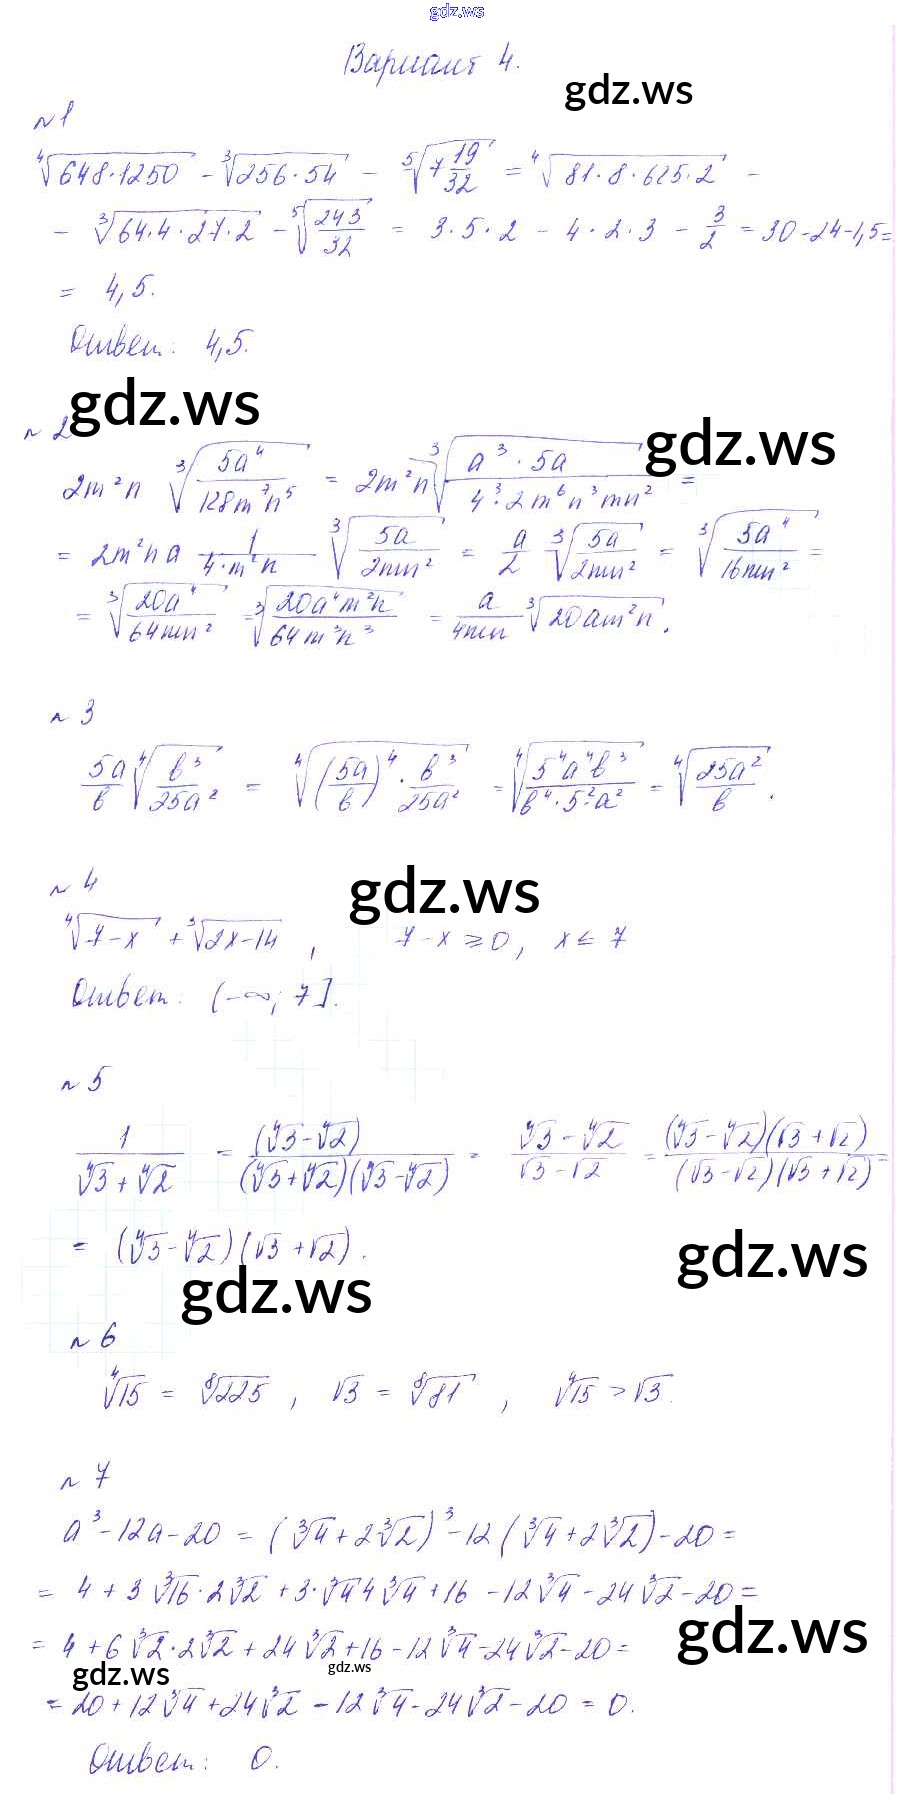 gdz.ws
Вариант 4.
gdz.ws
№1
⁴√(648·1250) - ³√(256·54) - ⁵√(7 19/32) = ⁴√(81·8·625·2) -
- ³√(64·4·27·2) - ⁵√(243/32) = 3·5·2 - 4·2·3 - 3/2 = 30-24-1,5=
= 4,5.
Ответ: 4,5.
gdz.ws
№2
gdz.ws
2m²n ³√(5a⁴/128m⁷n⁵) = 2m²n ³√(a³·5a/4³·2m⁶n³mn²) =
= 2m²na 1/4·m²n ³√(5a/2mn²) = a/2 ³√(5a/2mn²) = ³√(5a⁴/16mn²) =
= ³√(20a⁴/64mn²) = ³√(20a⁴m²n/64m³n³) = a/4mn ³√(20am²n).
№3
5a/в ⁴√(в³/25a²) = ⁴√((5a/в)⁴·в³/25a²) = ⁴√(5⁴a⁴в³/в⁴·5²·a²) = ⁴√(25a²/в).
№4
gdz.ws
⁴√(7-x) + ³√(2x-14), 7-x ≥ 0, x ≤ 7
Ответ: (-∞; 7].
№5
1/(⁴√3+⁴√2) = (⁴√3-⁴√2)/(⁴√3+⁴√2)(⁴√3-⁴√2) = (⁴√3-⁴√2)/(√3-√2) = (⁴√3-⁴√2)(√3+√2)/(√3-√2)(√3+√2) =
= (⁴√3-⁴√2)(√3+√2).
gdz.ws
gdz.ws
№6
⁴√15 = ⁸√225, √3 = ⁸√81, ⁴√15 > √3.
№7
a³-12a-20 = (³√4+2³√2)³-12(³√4+2³√2)-20=
= 4+3³√16·2³√2+3·³√4 4³√4+16-12³√4-24³√2-20=
= 4+6³√2·2³√2+24³√2+16-12³√4-24³√2-20=
gdz.ws
gdz.ws
gdz.ws
= 20+12³√4+24³√2-12³√4-24³√2-20=0.
Ответ: 0.